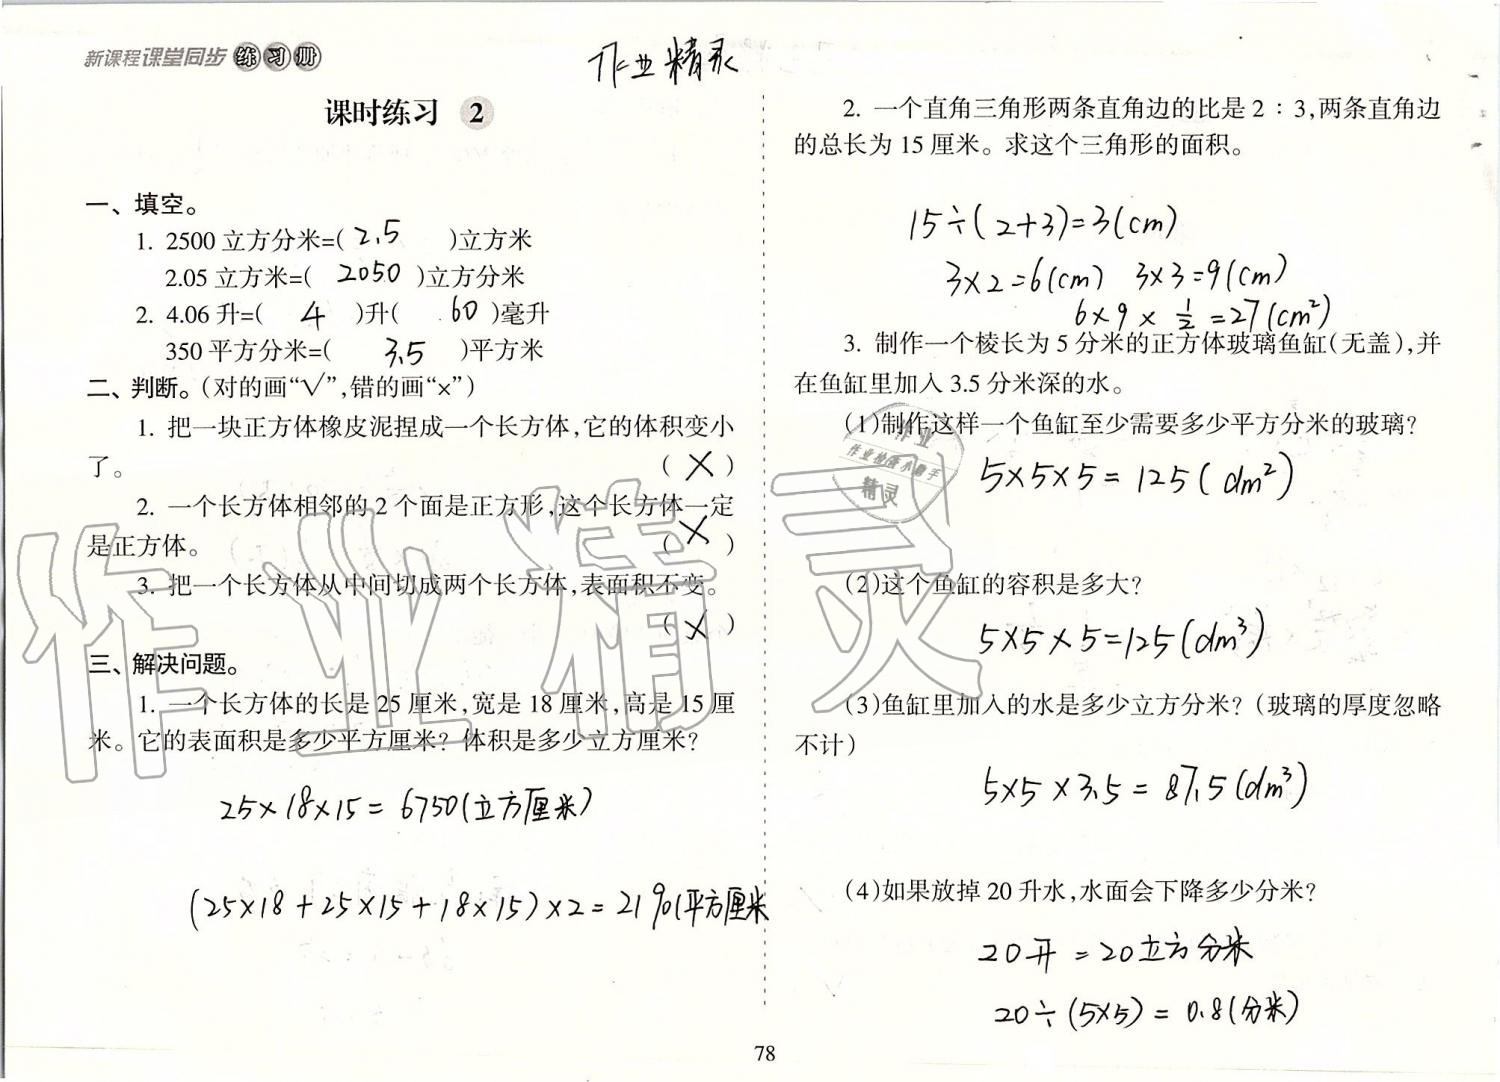 新课程课堂同步练习册
作业精灵
课时练习 2
一、填空。
1. 2500立方分米=( 2.5 )立方米
2.05立方米=( 2050 )立方分米
2. 4.06升=( 4 )升( 60 )毫升
350平方分米=( 3.5 )平方米
二、判断。(对的画“√”,错的画“×”)
1. 把一块正方体橡皮泥捏成一个长方体,它的体积变小
了。 ( × )
2. 一个长方体相邻的2个面是正方形,这个长方体一定
是正方体。 ( × )
3. 把一个长方体从中间切成两个长方体,表面积不变。
( × )
三、解决问题。
1. 一个长方体的长是25厘米,宽是18厘米,高是15厘
米。它的表面积是多少平方厘米?体积是多少立方厘米?
25×18×15=6750(立方厘米)
(25×18+25×15+18×15)×2=2190(平方厘米
2. 一个直角三角形两条直角边的比是2∶3,两条直角边
的总长为15厘米。求这个三角形的面积。
15÷(2+3)=3(cm)
3×2=6(cm) 3×3=9(cm)
6×9×1/2=27(cm²)
3. 制作一个棱长为5分米的正方体玻璃鱼缸(无盖),并
在鱼缸里加入3.5分米深的水。
(1)制作这样一个鱼缸至少需要多少平方分米的玻璃?
5×5×5=125(dm²)
(2)这个鱼缸的容积是多大?
5×5×5=125(dm³)
(3)鱼缸里加入的水是多少立方分米?(玻璃的厚度忽略
不计)
5×5×3.5=87.5(dm³)
(4)如果放掉20升水,水面会下降多少分米?
20升=20立方分米
20÷(5×5)=0.8(分米)
78
作业精灵
作业
作业检查小助手
精灵